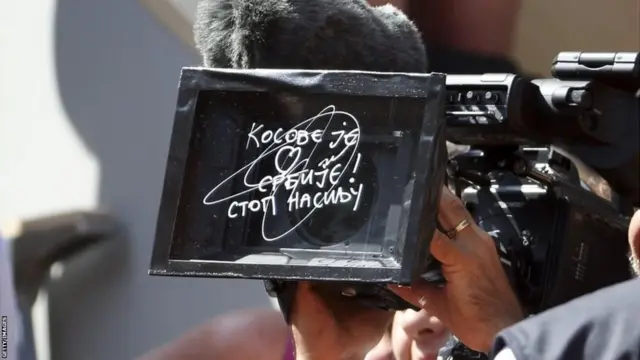 КОСОВЕ ЈЕ
♡ СРБИЈЕ!
СТОП НАСИЉУ
GETTY IMAGES